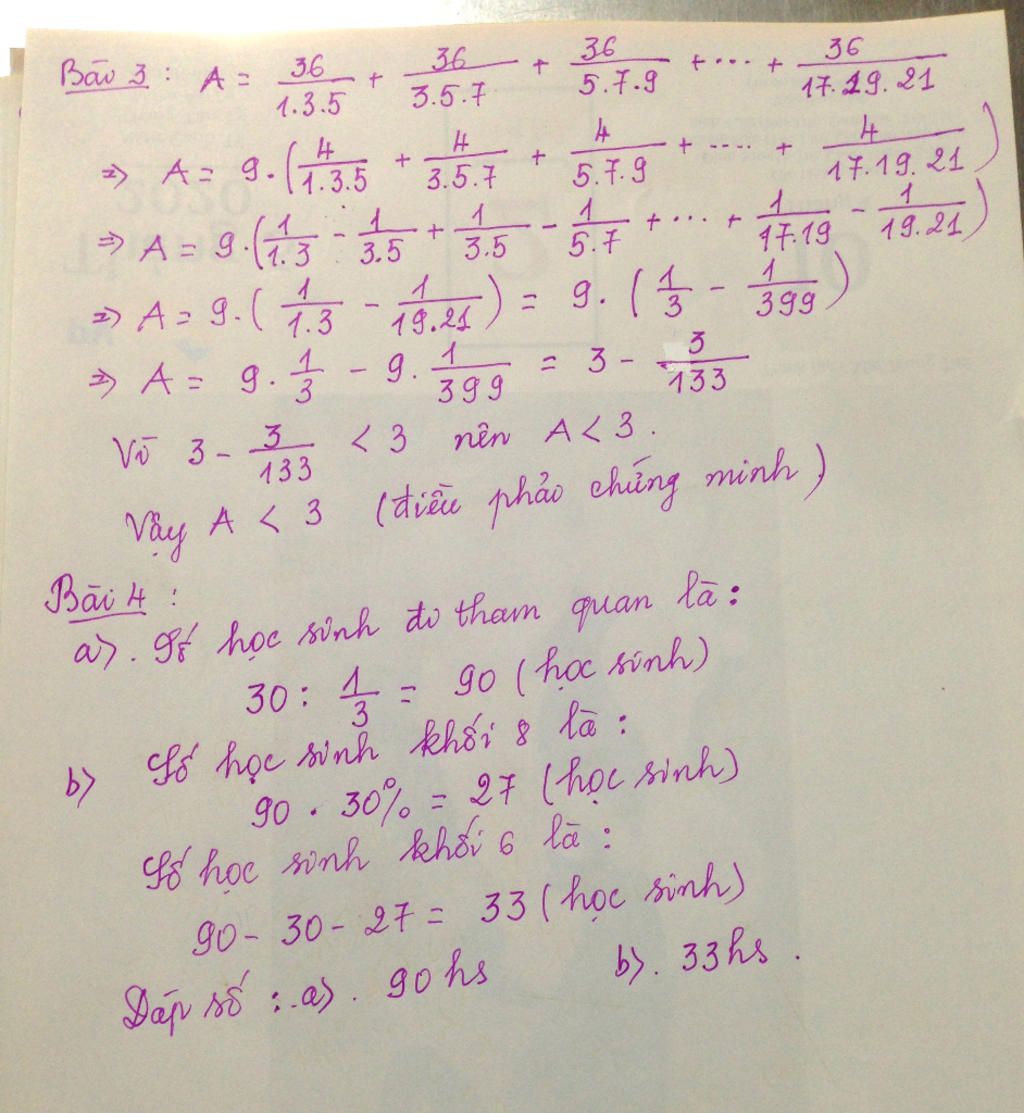 Bài 3 : A = 36/1.3.5 + 36/3.5.7 + 36/5.7.9 + .... + 36/17.19.21
=> A = 9.(4/1.3.5 + 4/3.5.7 + 4/5.7.9 + .... + 4/17.19.21)
=> A = 9.(1/1.3 - 1/3.5 + 1/3.5 - 1/5.7 + ... + 1/17.19 - 1/19.21)
=> A = 9.(1/1.3 - 1/19.21) = 9.(1/3 - 1/399)
=> A = 9.1/3 - 9.1/399 = 3 - 3/133
Vì 3 - 3/133 < 3 nên A < 3.
Vậy A < 3 (điều phải chứng minh)
Bài 4 :
a). Số học sinh đi tham quan là :
30 : 1/3 = 90 (học sinh)
b) Số học sinh khối 8 là :
90 . 30% = 27 (học sinh)
Số học sinh khối 6 là :
90 - 30 - 27 = 33 (học sinh)
Đáp số : a). 90 hs b). 33 hs .